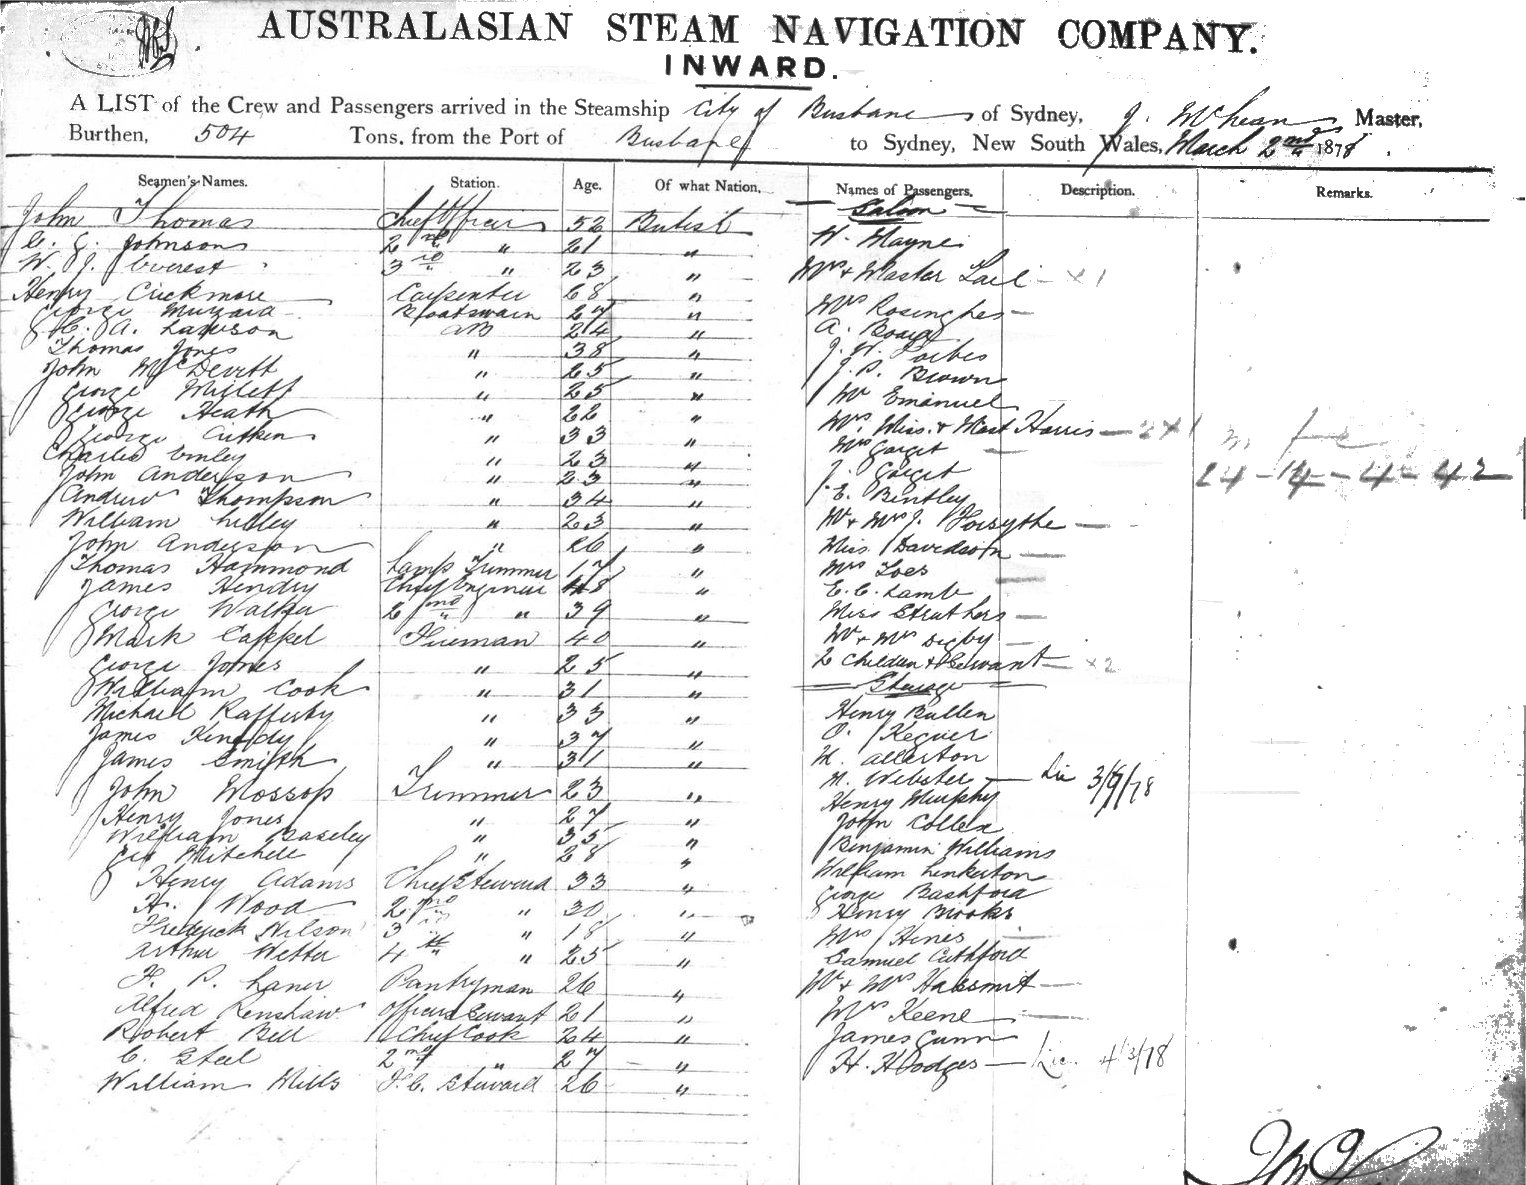 AUSTRALASIAN STEAM NAVIGATION COMPANY.
INWARD.
A LIST of the Crew and Passengers arrived in the Steamship City of Brisbane of Sydney, J. McLean Master,
Burthen, 504 Tons, from the Port of Brisbane to Sydney, New South Wales, March 2nd 1878.
Seamen's Names. Station. Age. Of what Nation. Names of Passengers. Description. Remarks.
John Thomas Chief Officer 52 British
Saloon
C. J. Johnson 2nd " 21 " W. Mayne
W. J. Everest 3rd " 23 " Mrs & Master x 1
Henry Carpenter 68 "
George Boatswain 27 " Mrs
C. A. Lawson AB 24 " A.
Thomas Jones " 38 " J. W. Forbes
John McDevitt " 25 " J. P. Brown
George Millett " 25 " Mr Emanuel
George Heath " 22 " Mrs, Miss & Mast Harris 2 x 1
George Aitken " 33 " Mrs Garget
Charles " 23 " J. Garget
John Anderson " 23 " 24 - 14 - 4 - 42
Andrew Thompson " 34 " E. Bentley
William " 23 " Mr & Mrs J. Forsythe
John Anderson " 26 " Miss Davidson
Thomas Hammond Lamp Trimmer 17 " Mrs
James Hendry Chief Engineer 48 " E. C. Lamb
George Walker 2nd " 39 " Miss Struthers
Mark Cappel Fireman 40 " Mr & Mrs Digby
George Jones " 25 " 2 Children & Servant x 2
William Cook " 31 " Steerage
Michael Rafferty " 33 " Henry Bullen
James Kenedy " 37 " O.
James Smith " 31 " M. Allerton
M. Webster
John Mossop Trimmer 23 " Henry Murphy
Henry Jones " 27 " John
William Baseley " 35 " Benjamin Williams
Geo Mitchell " 28 " William Linkerton
Henry Adams Chief Steward 33 " George Bashford
H. Wood 2nd " 30 " Henry Brooks
Frederick Wilson 3rd " 18 " Mrs Hines
Arthur 4th " 25 " Samuel Cuthford
F. P. Pantryman 26 " Mr & Mrs
Alfred Renshaw Officers Servant 21 " Mrs Keene
Robert Bell Chief Cook 24 " James Gunn
C. Steel 2nd " 27 " H. Hodges 4/3/78
William Mills F.C. Steward 26 "